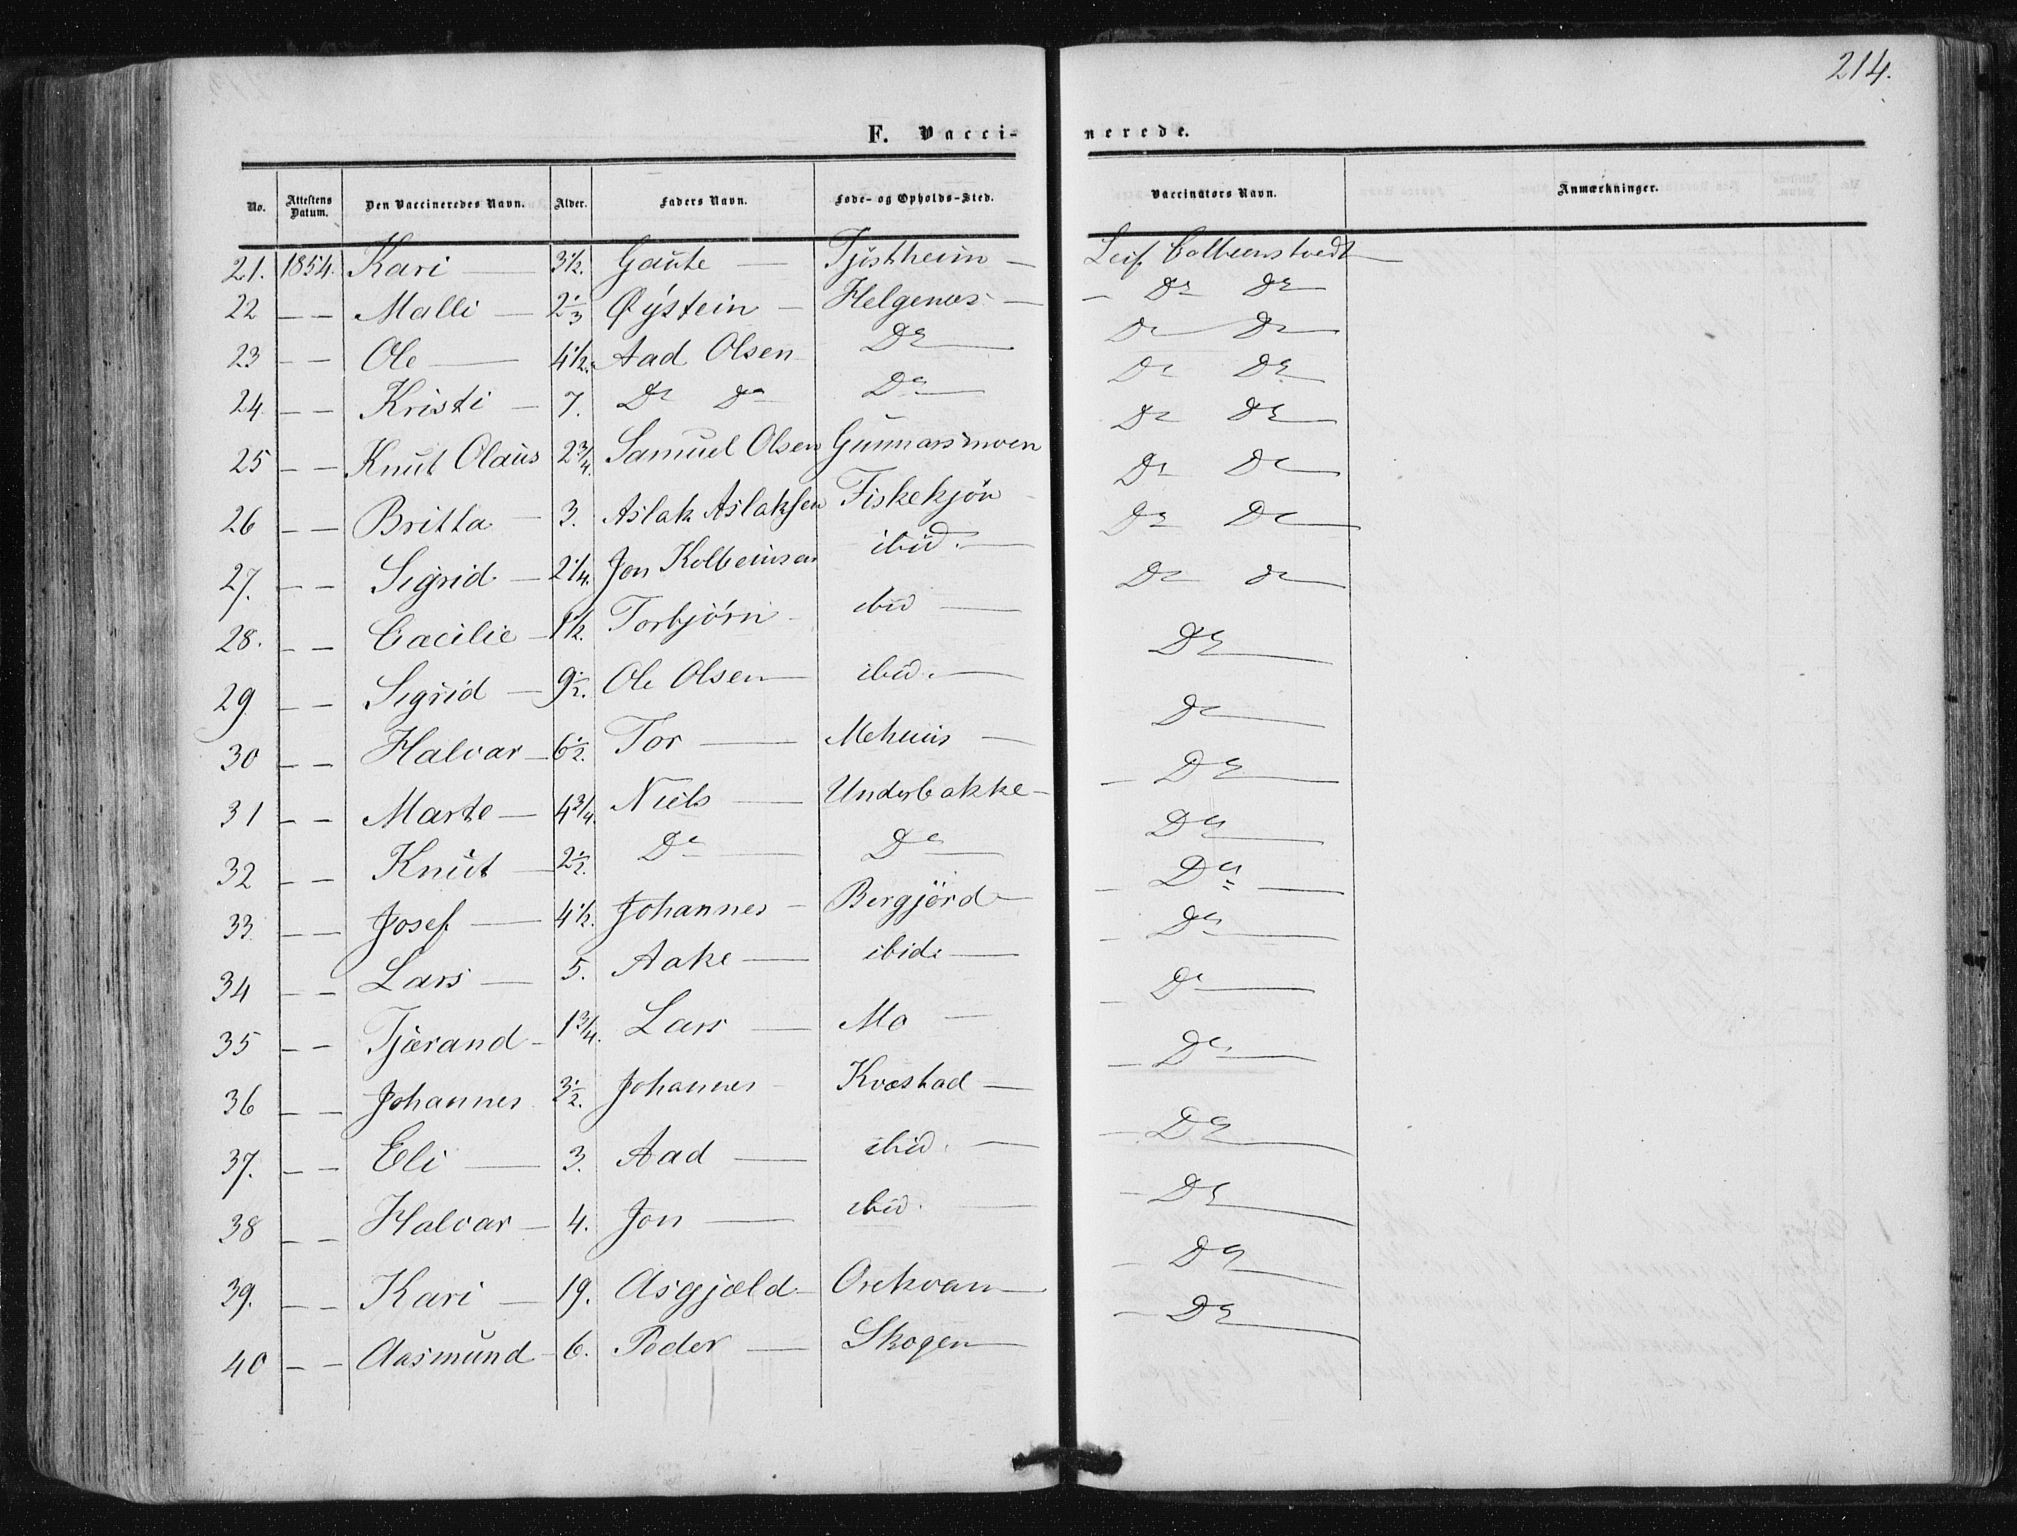 214.
F. Vacci- nerede.
No. Attestens Datum. Den Vaccineredes Navn. Alder. Faders Navn. Føde- og Opholds-Sted. Vaccinators Navn. Anmærkninger.
21. 1854. Kari — 3 1/2. Gaute — Tjøstheim — Leif Colbeenstvedt —
22 — — Malli — 2 1/3 Øystein — Helgenæs — — Do Do
23 — — Ole — 4 1/2. Aad Olsen Do — Do Do
24 — — Kristi — 7. Do Do Do — Do Do
25 — — Knut Claus 2 3/4. Samuel Olsen Gunnarsmoen Do Do
26 — — Britta — 3. Aslak Aslaksen Fiskekjøn Do Do
27. — — Sigrid — 2 1/4. Jon Kolbeinsen ibid. — Do Do
28. — — Cæcilie — 1 1/2. Torbjørn ibid — Do Do
29 — — Sigrid — 9 1/2. Ole Olsen — ibid. — Do
30 — — Halvar — 6 1/2. Tor — Mehuus — Do
31 — — Marte — 4 3/4. Niels — Underbakke — — Do
32 — — Knut — 2 1/2. Do — Do — Do
33 — — Josef — 4 1/2. Johannes — Bergjørd — — Do —
34 — — Lars — 5. Aake — ibid. — — Do
35 — — Tjærand — 1 3/4. Lars — Mo — — Do
36 — — Johannes 3 1/2. Johannes Kvæstad — — Do
37. — — Eli — 3. Aad — ibid. — — Do
38 — — Halvar — 4. Jon — ibid. — — Do
39. — — Kari — 19. Asgjæld Orekvam — Do
40 — — Aasmund 6. Peder — Skogen — Do